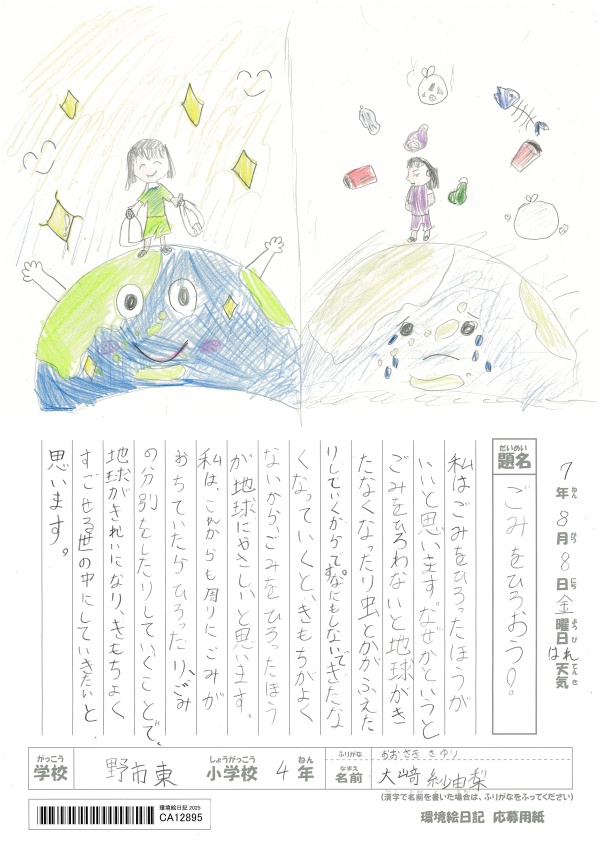 7年8月8日金曜日 はれ 天気
ねん がつ にち ようび てんき
だいめい
題名
ごみをひろおう!。
私はごみをひろったほうが
いいと思います。なぜかというと
ごみをひろわないと地球がき
たなくなったり虫とかがふえた
りしていくからです。なにもしないできたな
くなっていくと、きもちがよく
ないから、ごみをひろったほう
が地球にやさしいと思います。
私は、これからも周りにごみが
おちていたらひろったり、ごみ
の分別をしたりしていくことで、
地球がきれいになり、きもちよく
すごせる世の中にしていきたいと
思います。
がっこう
学校
野市東
しょうがっこう
小学校
4
ねん
年
ふりがな
おおさき さゆり
なまえ
名前
大﨑 紗由梨
(漢字で名前を書いた場合は、ふりがなをふってください)
環境絵日記 2025
CA12895
環境絵日記 応募用紙